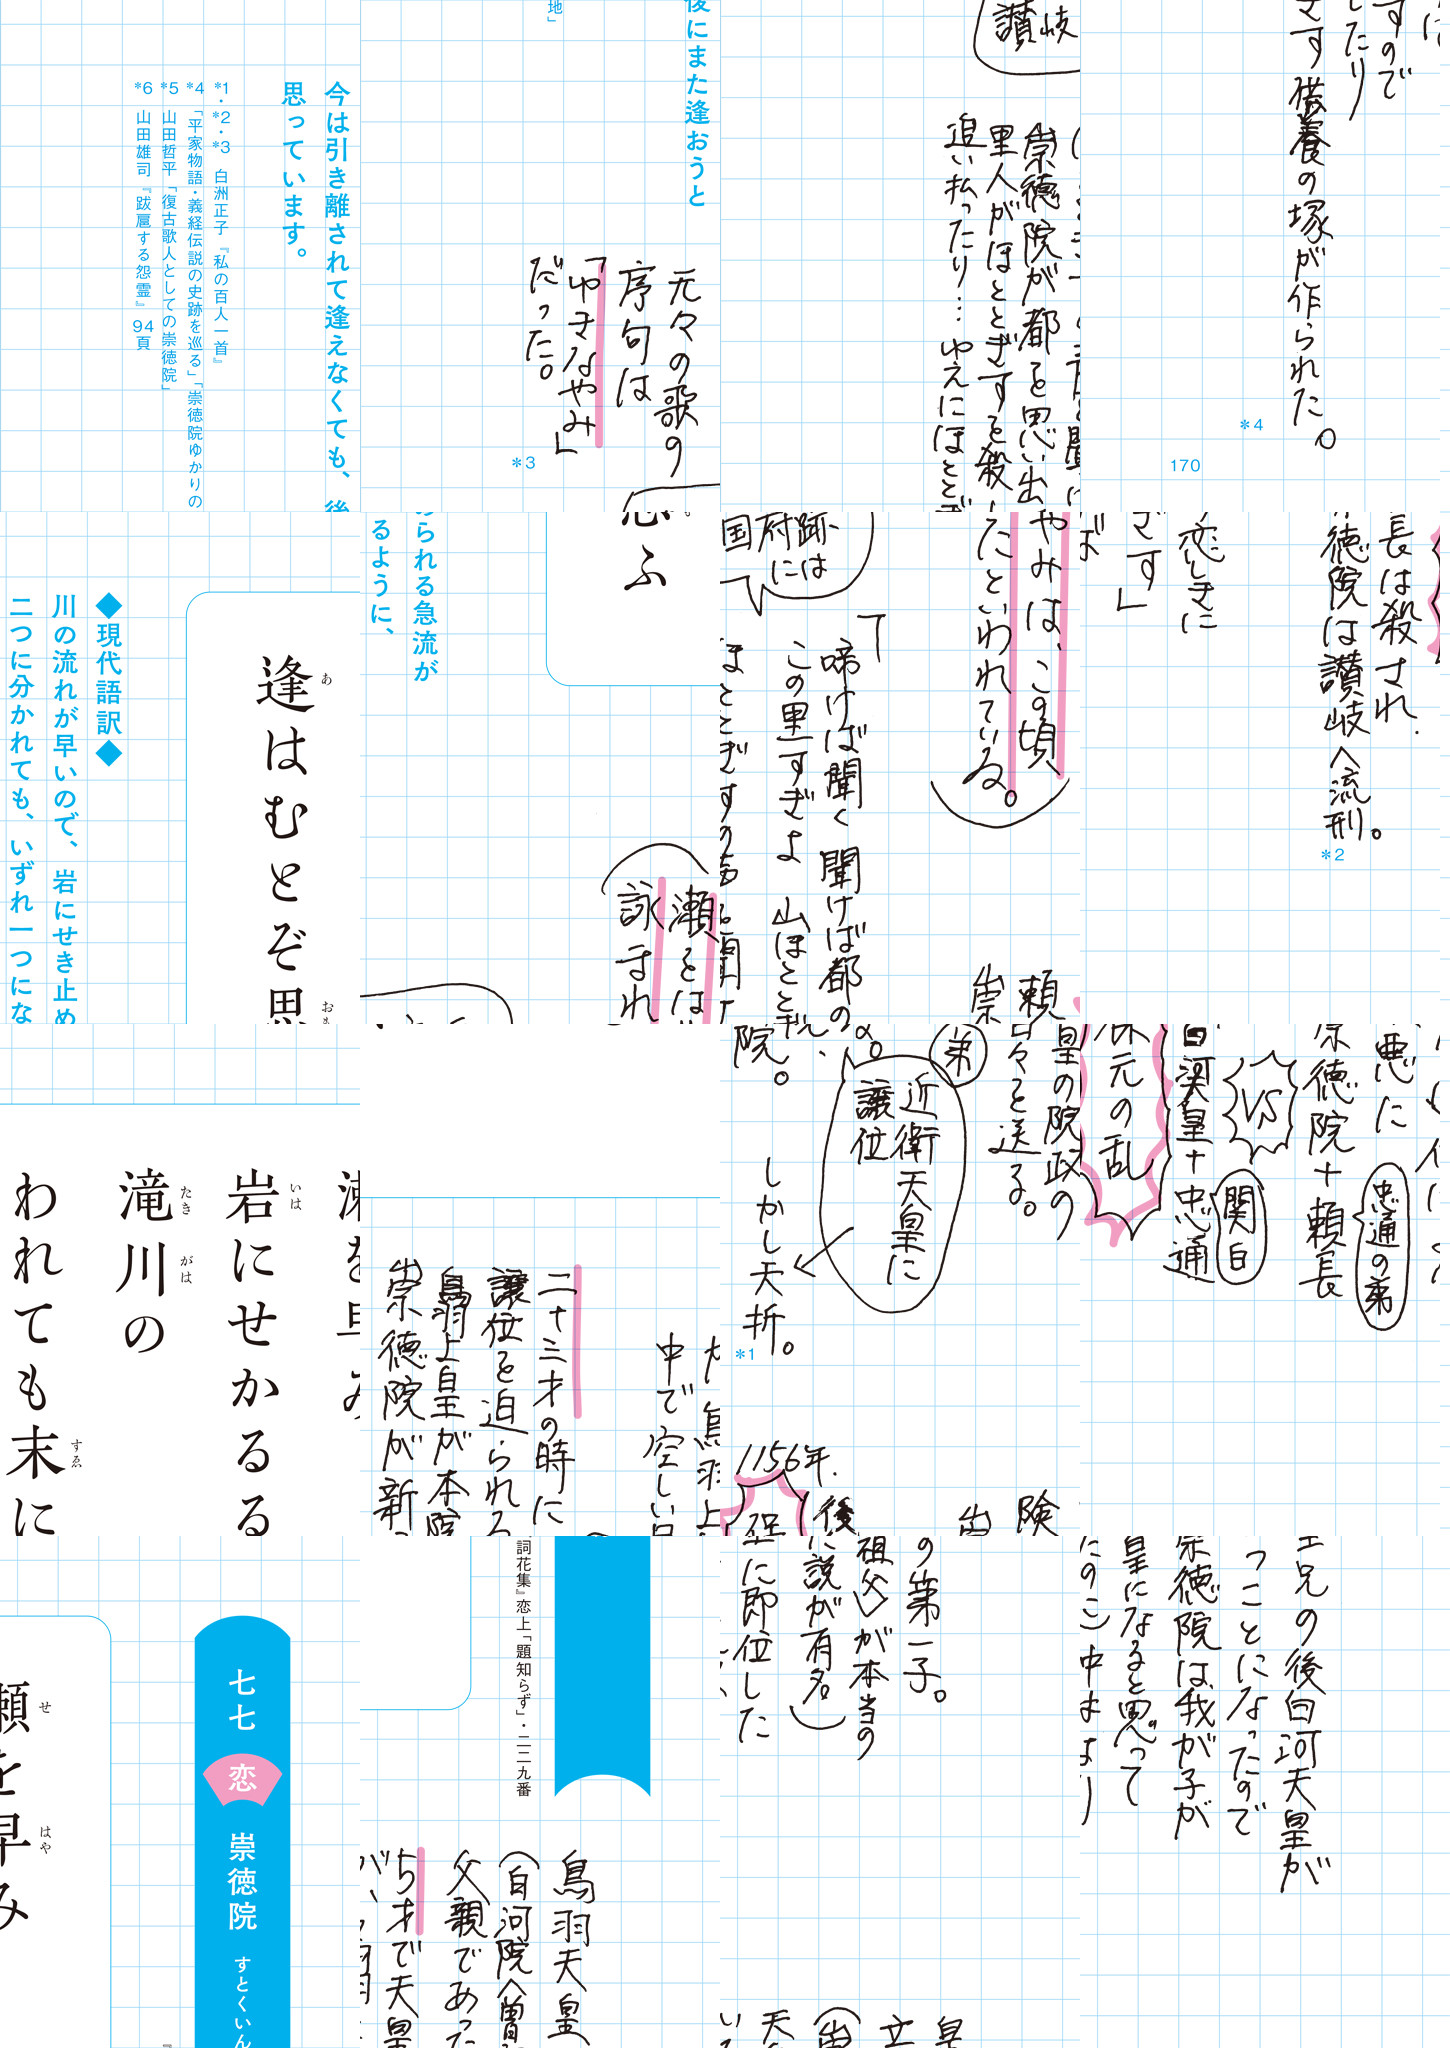 今は引き離されて逢えなくても、後
思っています。
*1・*2・*3 白洲正子『私の百人一首』
*4「平家物語・義経伝説の史跡を巡る」「崇徳院ゆかりの
*5 山田哲平「復古歌人としての崇徳院」
*6 山田雄司『跋扈する怨霊』94頁
後にまた逢おうと
地」
元々の歌の
序句は
「ゆきなやみ」
だった。
*3
讃岐
崇徳院が都を思い出
里人がほととぎすを殺したり
追い払ったり…ゆえにほととぎ
すので
したり
ぎす供養の塚が作られた。
*4
170
逢はむとぞ思
あ
◆現代語訳◆
川の流れが早いので、岩にせき止め
二つに分かれても、いずれ一つにな
ふ
められる急流が
るように、
瀬とは
詠まれ
やみは、この頃
たといわれている。
跡は
府に
国
「啼けば聞く 聞けば都の
この里すぎよ 山ほととぎ
ほととぎすの声を聞け
頼
崇
長は殺され、
徳院は讃岐へ流刑。
*2
恋しきに
ぎす」
ば
瀬を早み
岩にせかるる
いは
滝川の
たき がは
われても末に
すゑ
鳥羽上
中で空しい日
二十三才の時に
譲位を迫られる
鳥羽上皇が本院
崇徳院が新
皇の院政の
日々を送る。
弟
近衛天皇に
譲位
院。
しかし夭折。
*1
1156年、
後
保
険
出
悪に
忠通の弟
崇徳院+頼長
VS
関白
白河天皇+忠通
保元の乱
七七 恋 崇徳院 すとくいん
瀬を早み
せ
はや
『
詞花集』恋上「題知らず」・二二九番
鳥羽天皇
(白河院〈曽
父親であった
5才で天皇
の第一子。
祖父〉が本当の
に説が有名)
皇に即位した
皇
立
天
兄の後白河天皇が
つことになったので
崇徳院は、我が子が
皇になると思って
たのに)中よより